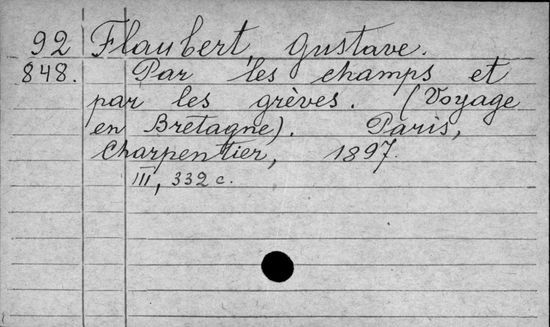 92 Flaubert, Gustave.
848. Par les champs et
par les grèves. (Voyage
en Bretagne). Paris,
Charpentier, 1897.
III, 332 c.